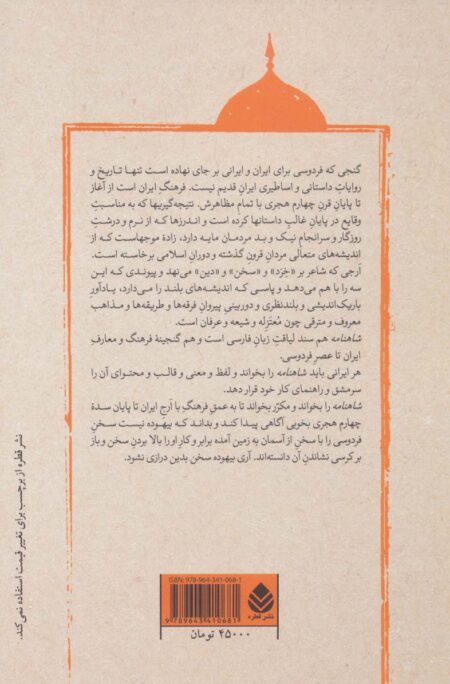 گنجی که فردوسی برای ایران و ایرانی بر جای نهاده است تنها تاریخ و
روایات داستانی و اساطیری ایرانِ قدیم نیست. فرهنگ ایران است از آغاز
تا پایان قرن چهارم هجری با تمام مظاهرش. نتیجه‌گیریها که به مناسبتِ
وقایع در پایانِ غالبِ داستانها کرده است و اندرزها که از نرم و درشتِ
روزگار و سرانجامِ نیک و بد مردمان مایه دارد، زادهٔ موجهاست که از
اندیشه‌های متعالی مردانِ قرون گذشته و دورانِ اسلامی برخاسته است.
اَرجی که شاعر بر «خِرَد» و «سخن» و «دین» می‌نهد و پیوندی که این
سه را با هم می‌دهد و پاسی که اندیشه‌های بلند را می‌دارد، یادآورِ
باریک‌اندیشی و بلندنظری و دوربینی پیروانِ فرقه‌ها و طریقه‌ها و مذاهب
معروف و مترقی چون مُعتَزِله و شیعه و عرفان است.
شاهنامه هم سند لیاقتِ زبانِ فارسی است و هم گنجینهٔ فرهنگ و معارفِ
ایران تا عصرِ فردوسی.
هر ایرانی باید شاهنامه را بخواند و لفظ و معنی و قالب و محتوای آن را
سرمشق و راهنمای کار خود قرار دهد.
شاهنامه را بخواند و مکرّر بخواند تا به عمقِ فرهنگِ با اَرجِ ایران تا پایان سدهٔ
چهارم هجری بخوبی آگاهی پیدا کند و بداند که بیهوده نیست سخنِ
فردوسی را با سخنِ از آسمان به زمین آمده برابر و کارِ او را بالا بردنِ سخن و باز
بر کرسی نشاندنِ آن دانسته‌اند. آری بیهوده سخن بدین درازی نشود.
نشر قطره از برچسب برای تغییر قیمت استفاده نمی‌کند.
ISBN: 978-964-341-068-1
9 789643 410681
نشر قطره
۴۵۰۰۰ تومان